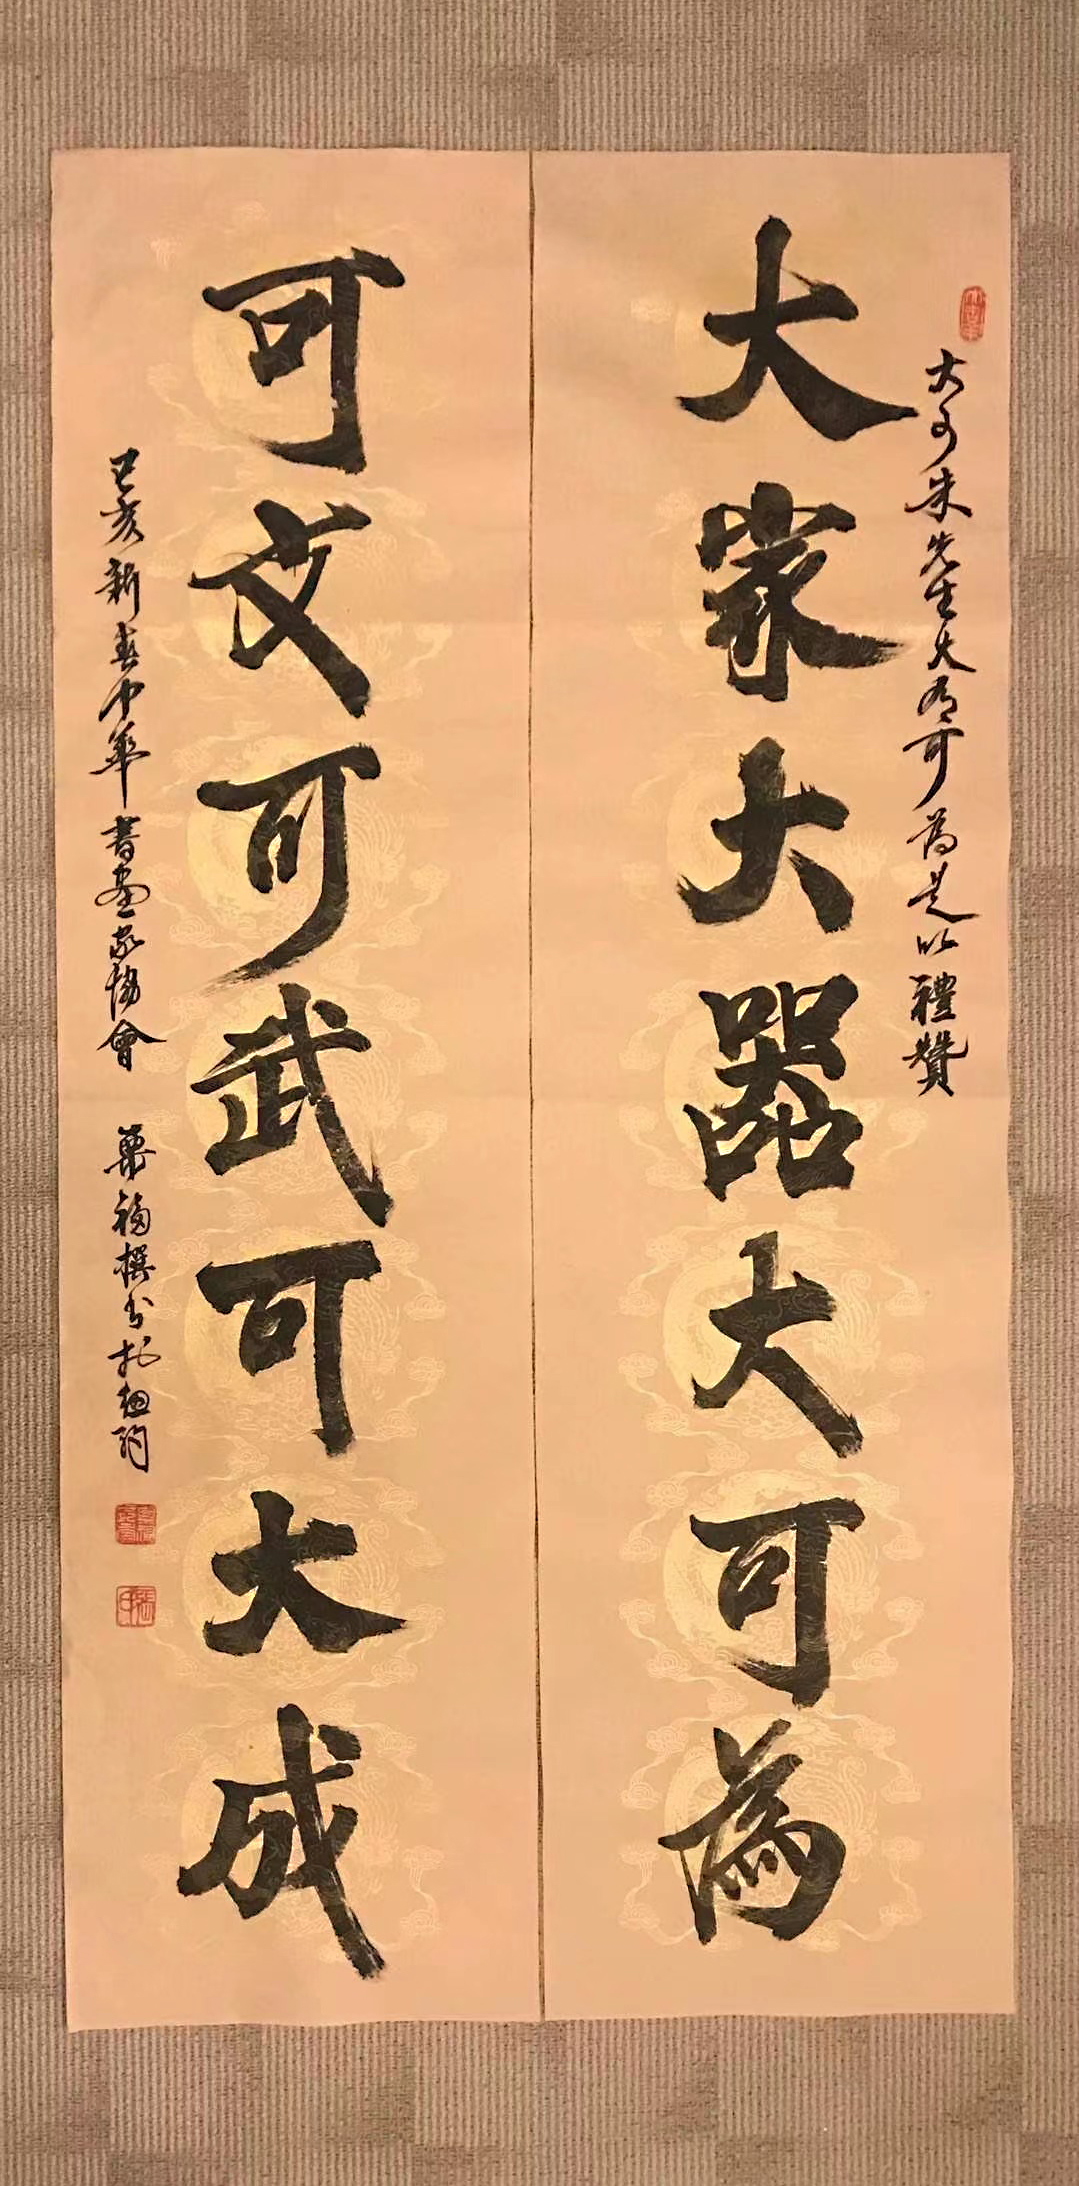 大可朱先生大有可為是以禮贊
大家大器大可為
可文可武可大成
己亥新春中華書畫家協會 福撰書於紐約